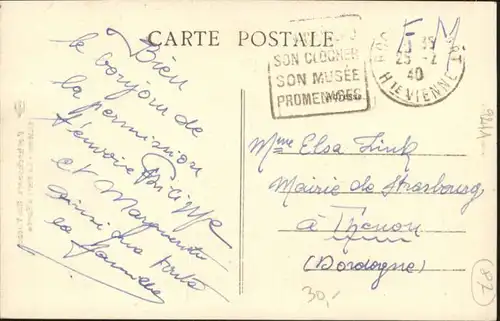 CARTE POSTALE
SON CLOCHER
SON MUSÉE
PROMENADES
F M
25 -2
40
HTE VIENNE
Bien
le bonjour de
la permission
Philippe
et Marguerite
ainsi que toute
la famille
Mme Elsa Fink
Mairie de Strasbourg
à Thenon
(Dordogne)
30,-
87